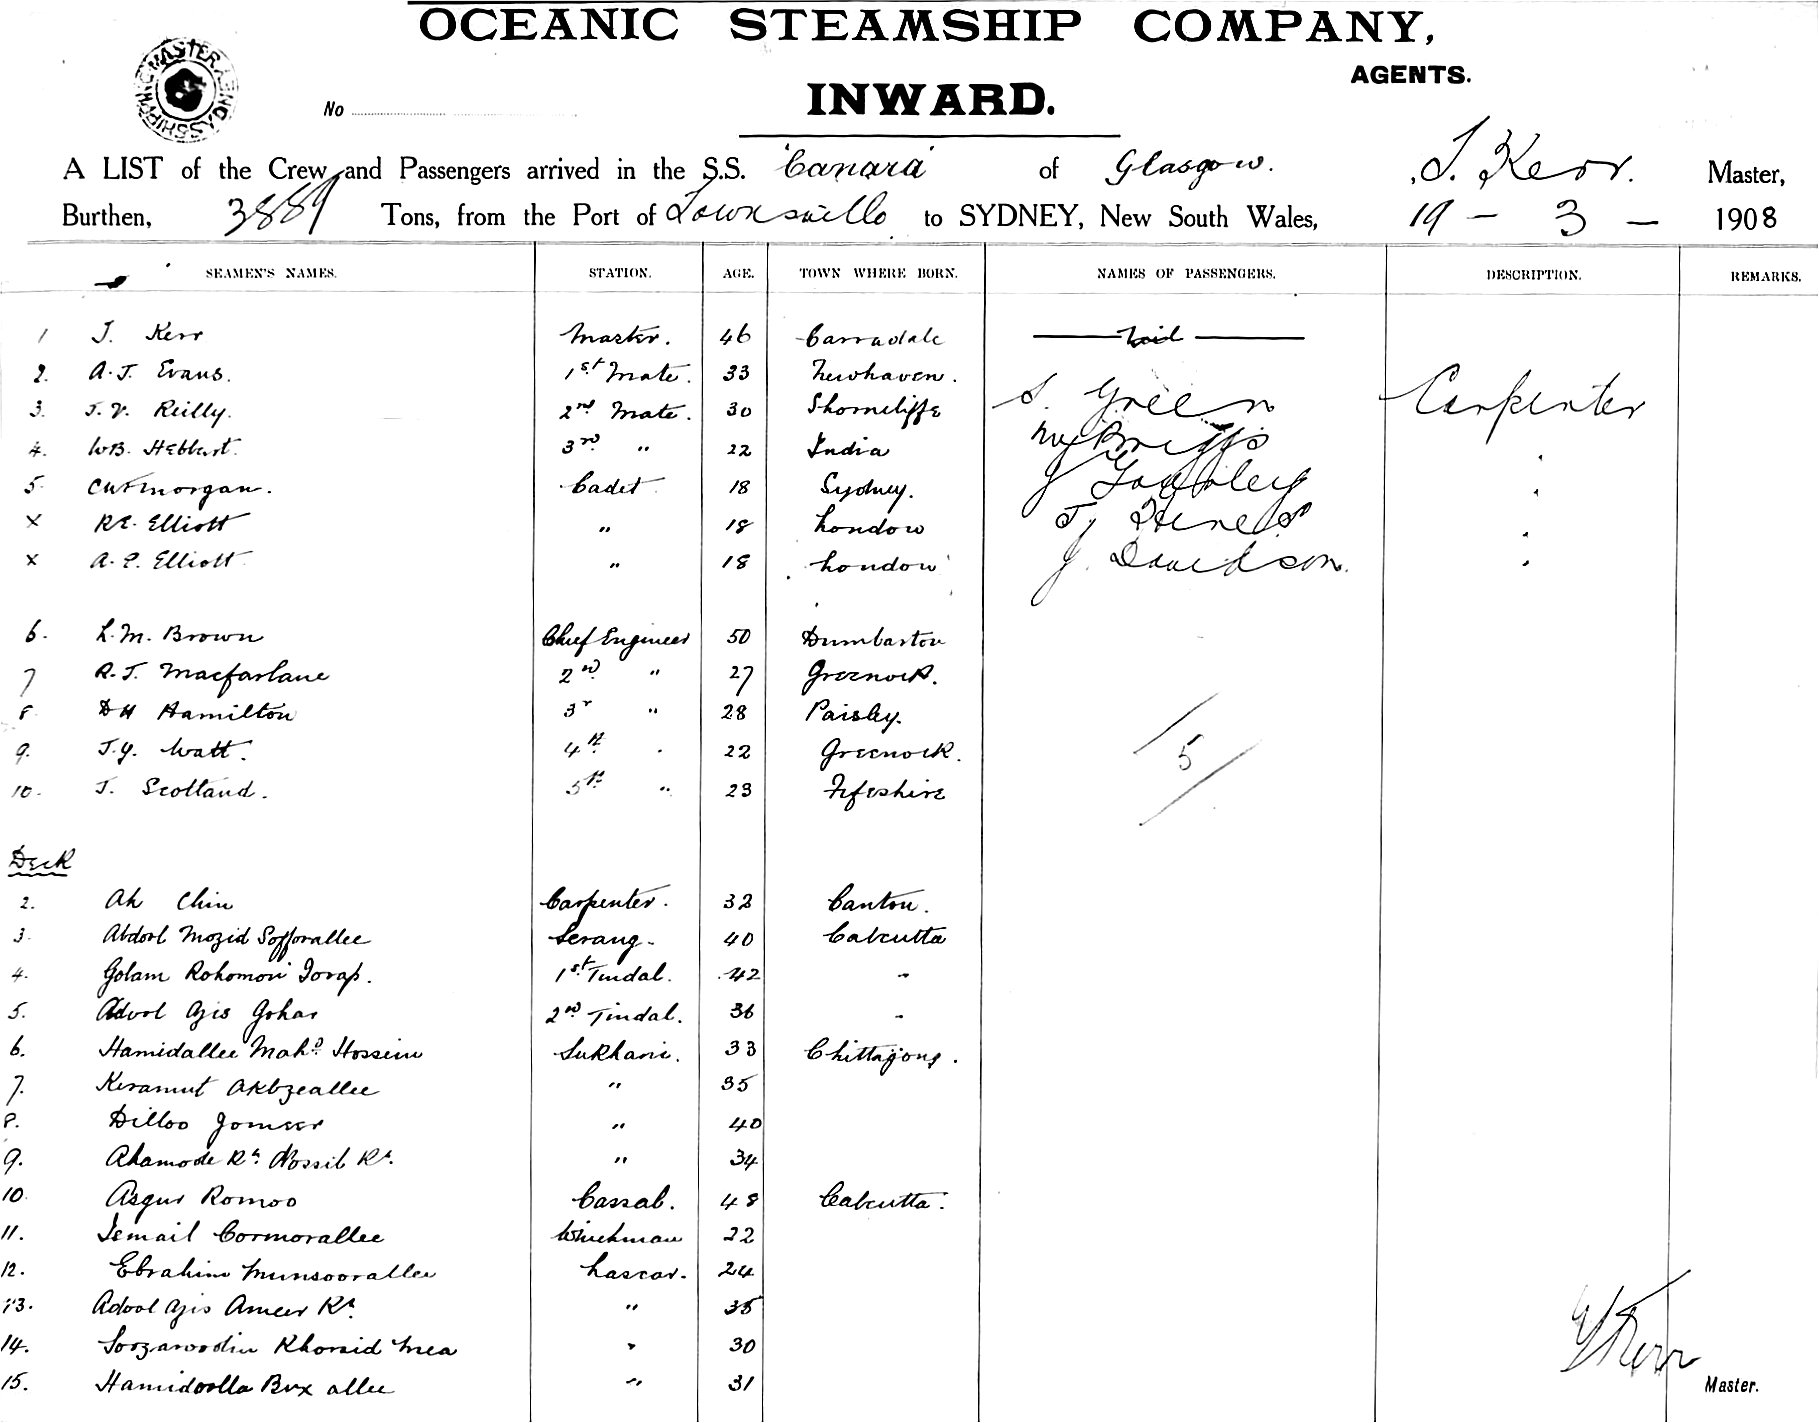 OCEANIC STEAMSHIP COMPANY,
AGENTS.
INWARD.
No
A LIST of the Crew and Passengers arrived in the S.S. "Canara" of Glasgow. J. Kerr. Master,
Burthen, 3889 Tons, from the Port of Townsville to SYDNEY, New South Wales, 19 - 3 - 1908
SEAMEN'S NAMES. STATION. AGE. TOWN WHERE BORN. NAMES OF PASSENGERS. DESCRIPTION. REMARKS.
1 J. Kerr Master. 46 Carradale
2. A.J. Evans. 1st Mate. 33 Newhaven.
3. J.V. Reilly. 2nd Mate. 30 Shorncliffe S. Green Carpenter
4. W.B. Hebbert. 3rd " 22 India
5 Morgan. Cadet 18 Sydney.
x R.E. Elliott " 18 London
x A.E. Elliott " 18 London J. Davidson.
6. L.M. Brown Chief Engineer 50 Dumbarton
7 R.J. Macfarlane 2nd " 27 Greenock.
8 D H Hamilton 3r " 28 Paisley.
9. J.Y. Watt. 4th 22 Greenock.
10. J. Scotland. 5th " 23 Fifeshire
5
Deck
2. Ah Chin Carpenter. 32 Canton.
3. Abdool Mozid Sofforallee Serang. 40 Calcutta
4. Golam Rohomon Torap. 1st Tindal. 42 "
5. Adool Gohar 2nd Tindal. 36 "
6. Hamidallee Mahd. Hossein Sukhani. 33 Chittagong.
7. Keramut Akbzeallee " 35
8. Dilloo Jomeer " 40
9. " 34
10. Asgur Romoo Cassab. 48 Calcutta.
11. Ismail Cormorallee Winchman 22
12. Ebrahim Munsoorallee Lascar. 24
13. Adool Ameer " 35
14. Khorsid Mea " 30
15. Hamidoolla Bux allee " 31
J Kerr
Master.